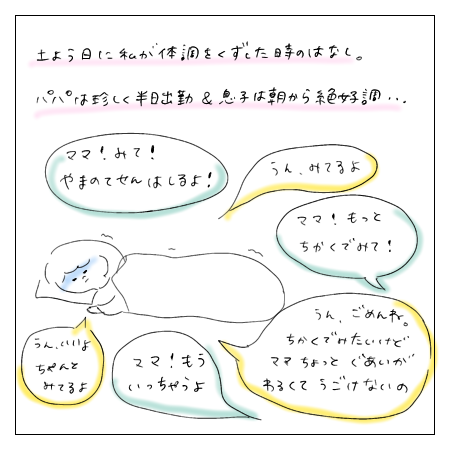 土よう日に私が体調をくずした時のはなし。
パパは珍しく半日出勤 & 息子は朝から絶好調…
ママ！みて！
やまのてせんはしるよ！
うん、みてるよ
ママ！もっと
ちかくでみて！
うん、ごめんね。
ちかくでみたいけど
ママちょっと ぐあいが
わるくて うごけないの
ママ！もう
いっちゃうよ
うん、いいよ
ちゃんと
みてるよ